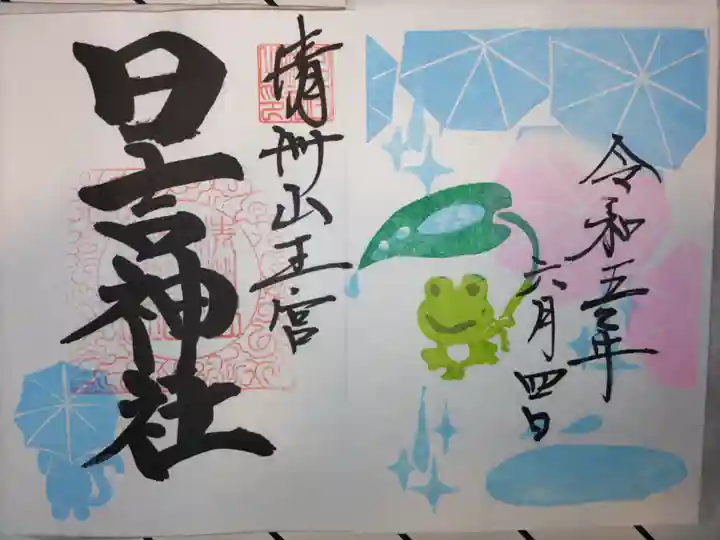 令和五年
六月四日
清州山王宮
日吉神社